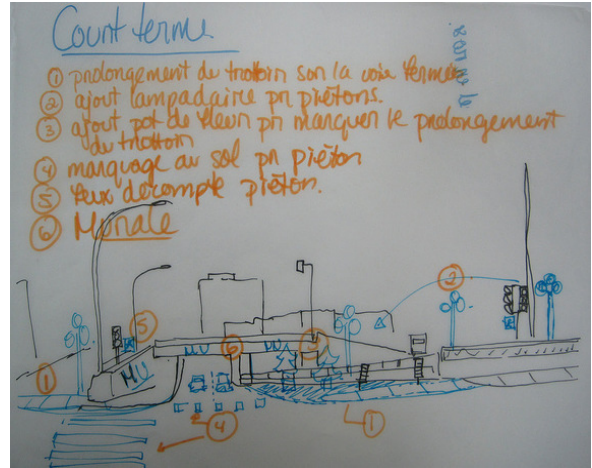 Court terme
① prolongement du trottoir sur la voie fermée
② ajout lampadaire pr piétons.
③ ajout pot de fleur pr marquer le prolongement
du trottoir
④ marquage au sol pr piéton
⑤ feux décompte piéton.
⑥ Murale
②
⑤
MU
⑥
MU
③
①
MU
④
①